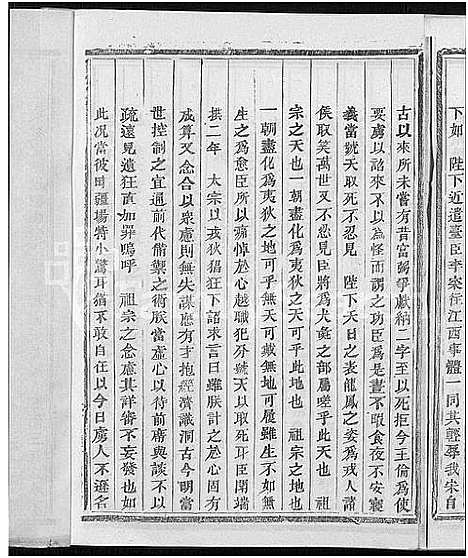 下如 陛下近遣臺臣李寀往江西事體一同其輕辱我宋自
古以來所未嘗有昔富弼爭獻納二字至以死拒今王倫爲使
要虜以詔來不以爲怪而謂之功臣爲是晝不暇食夜不安寢
義當號天取死不忍見 陛下天日之表龍鳳之姿爲戎人諸
侯取笑萬世又不忍見臣將爲犬彘之部屬嗟乎此天也 祖
宗之天也一朝盡化爲夷狄之天可乎此地也 祖宗之地也
一朝盡化爲夷狄之地可乎無天可戴無地可履雖生不如無
生之爲愈臣所以痛悼於心越職犯分號天以取死耳臣聞端
拱二年 太宗以亥狄猖狂下諸求言曰雖朕計之於心固有
成算又念合以衆慮則無失謀應有才抱經濟識洞古今明當
世控制之宜通前代備禦之術朕當虛心以待前席與談不以
疏遠見遺狂直加罪嗚呼 祖宗之念慮其詳審不妄發也如
此况當彼時疆場特小驚耳猶不敢自以今日虜人不遜名